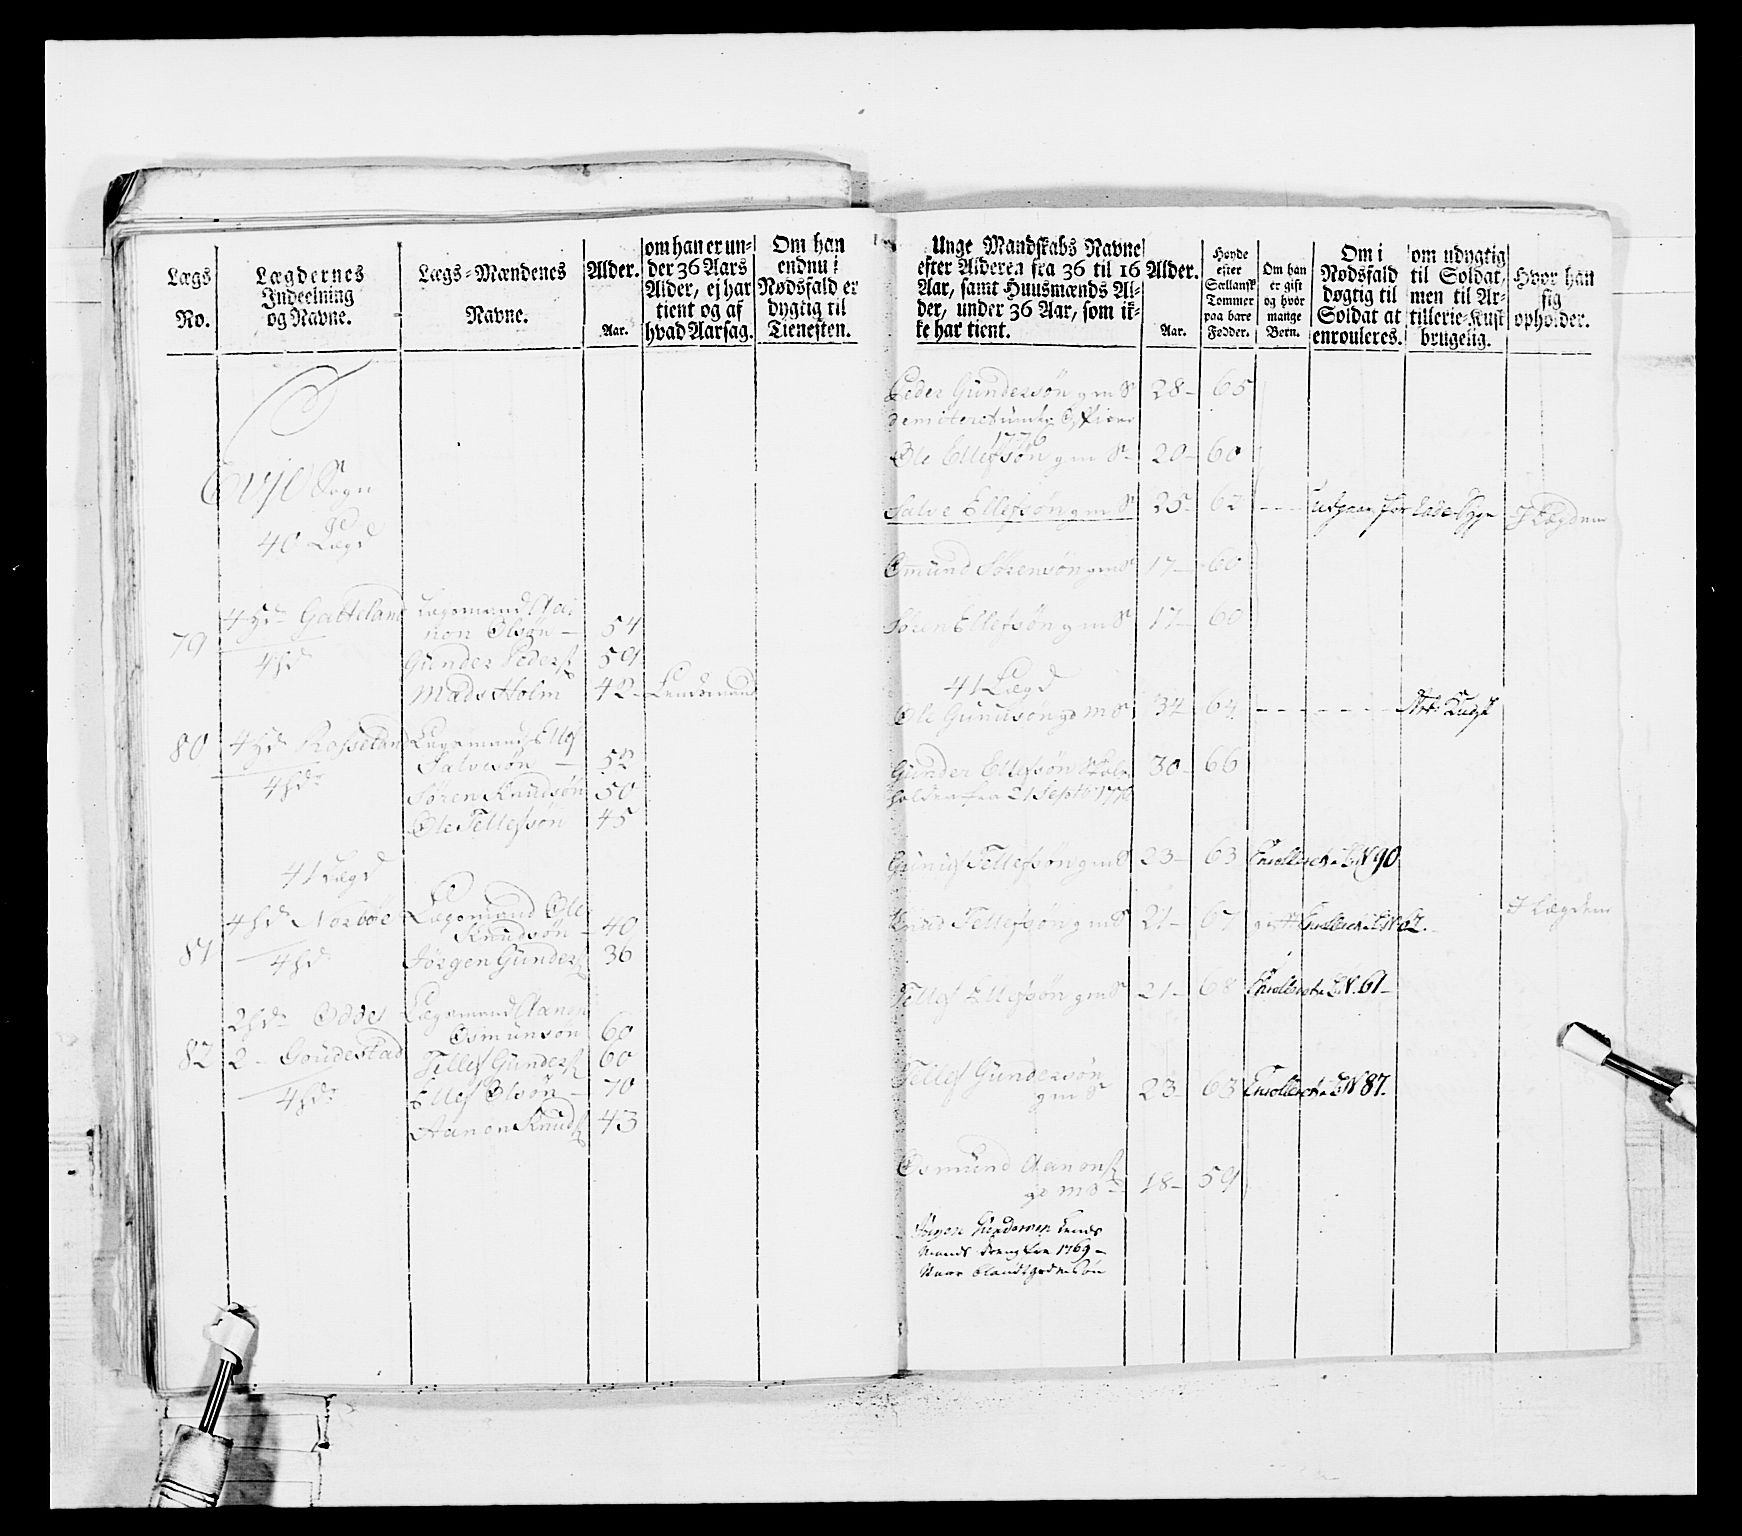 Lægs
No.
Lægdernes
Indeelning
og Navne.
Lægs-Mændenes
Navne.
Alder.
Aar.
om han er un-
der 36 Aars
Alder, ej har
tient og af
hvad Aarsag.
Om han
endnu i
Nødsfald er
dygtig til
Tienesten.
Evje Sogn
40de Lægd
79
4 hd. Gatteland
4 hd
Lægsmand Aa-
non Olsøn — 54
Gunder Peders. 59
Mads Holm 42 — Lendsmand
80
4 hd. Rosseland
4 hd.
Lægsmand Ellef
Salvesøn — 52
Søren Knudsøn 50
Ole Tellefsøn 45
41 Lægd
81
4 hd. Norbøe
4 hd.
Lægsmand Ole
Knudsøn — 40
Jørgen Gunders. 36
82
2 hd. Oddes
2 - Goudestad
4 hd.
Lægsmand Aanon
Osmunsøn 60
Tellef Gunders. 60
Ellef Olsøn — 70
Aanon Knuds. 43
Unge Mandskabs Navne
efter Alderen fra 36 til 16
Aar, samt Huusmænds Al-
der, under 36 Aar, som ik-
ke har tient.
Alder.
Aar.
Høyde
efter
Sællansk
Tommer
paa bare
Fødder.
Om han
er gift
og hvor
mange
Børn.
Om i
Nødsfald
døgtig til
Soldat at
enrouleres.
om udygtig
til Soldat,
men til Ar-
tillerie-Kusk
brugelig.
Hvor han
sig
opholder.
Peder Gundersøn gm S. 28 — 65
demiteret under Officer
1776
Ole Ellefsøn gm S. 20 — 60
Salve Ellefsøn gm S. 25 62 — — I Lægden
Omund Sørensøn gm S. 17 — 60
Søren Ellefsøn gm S. 17 — 60
41 Lægd
Ole Gundsøn gd m S. 34 64 — — — — — — Art: Kudsk
Gunder Ellefsøn 30 — 66
fra 21 Septbr 1776
Gunuf Tellefsøn gm S. 23 — 63 Enrolleret L.N. 90
Knud Tellefsøn gm S. 21 — 67 gift Enrolleret L.N. 62. I Lægden
Tellef Ellefsøn gm S. 21 — 68 Enrolleret L.N. 61 —
Tellef Gundersøn
gm S. 23 — 63 Enrolleret L.N. 87.
Osmund Aanons.
gd m S — 18 — 59
Jørgen Gundersen Lends
Mands Dreng fra 1769 —